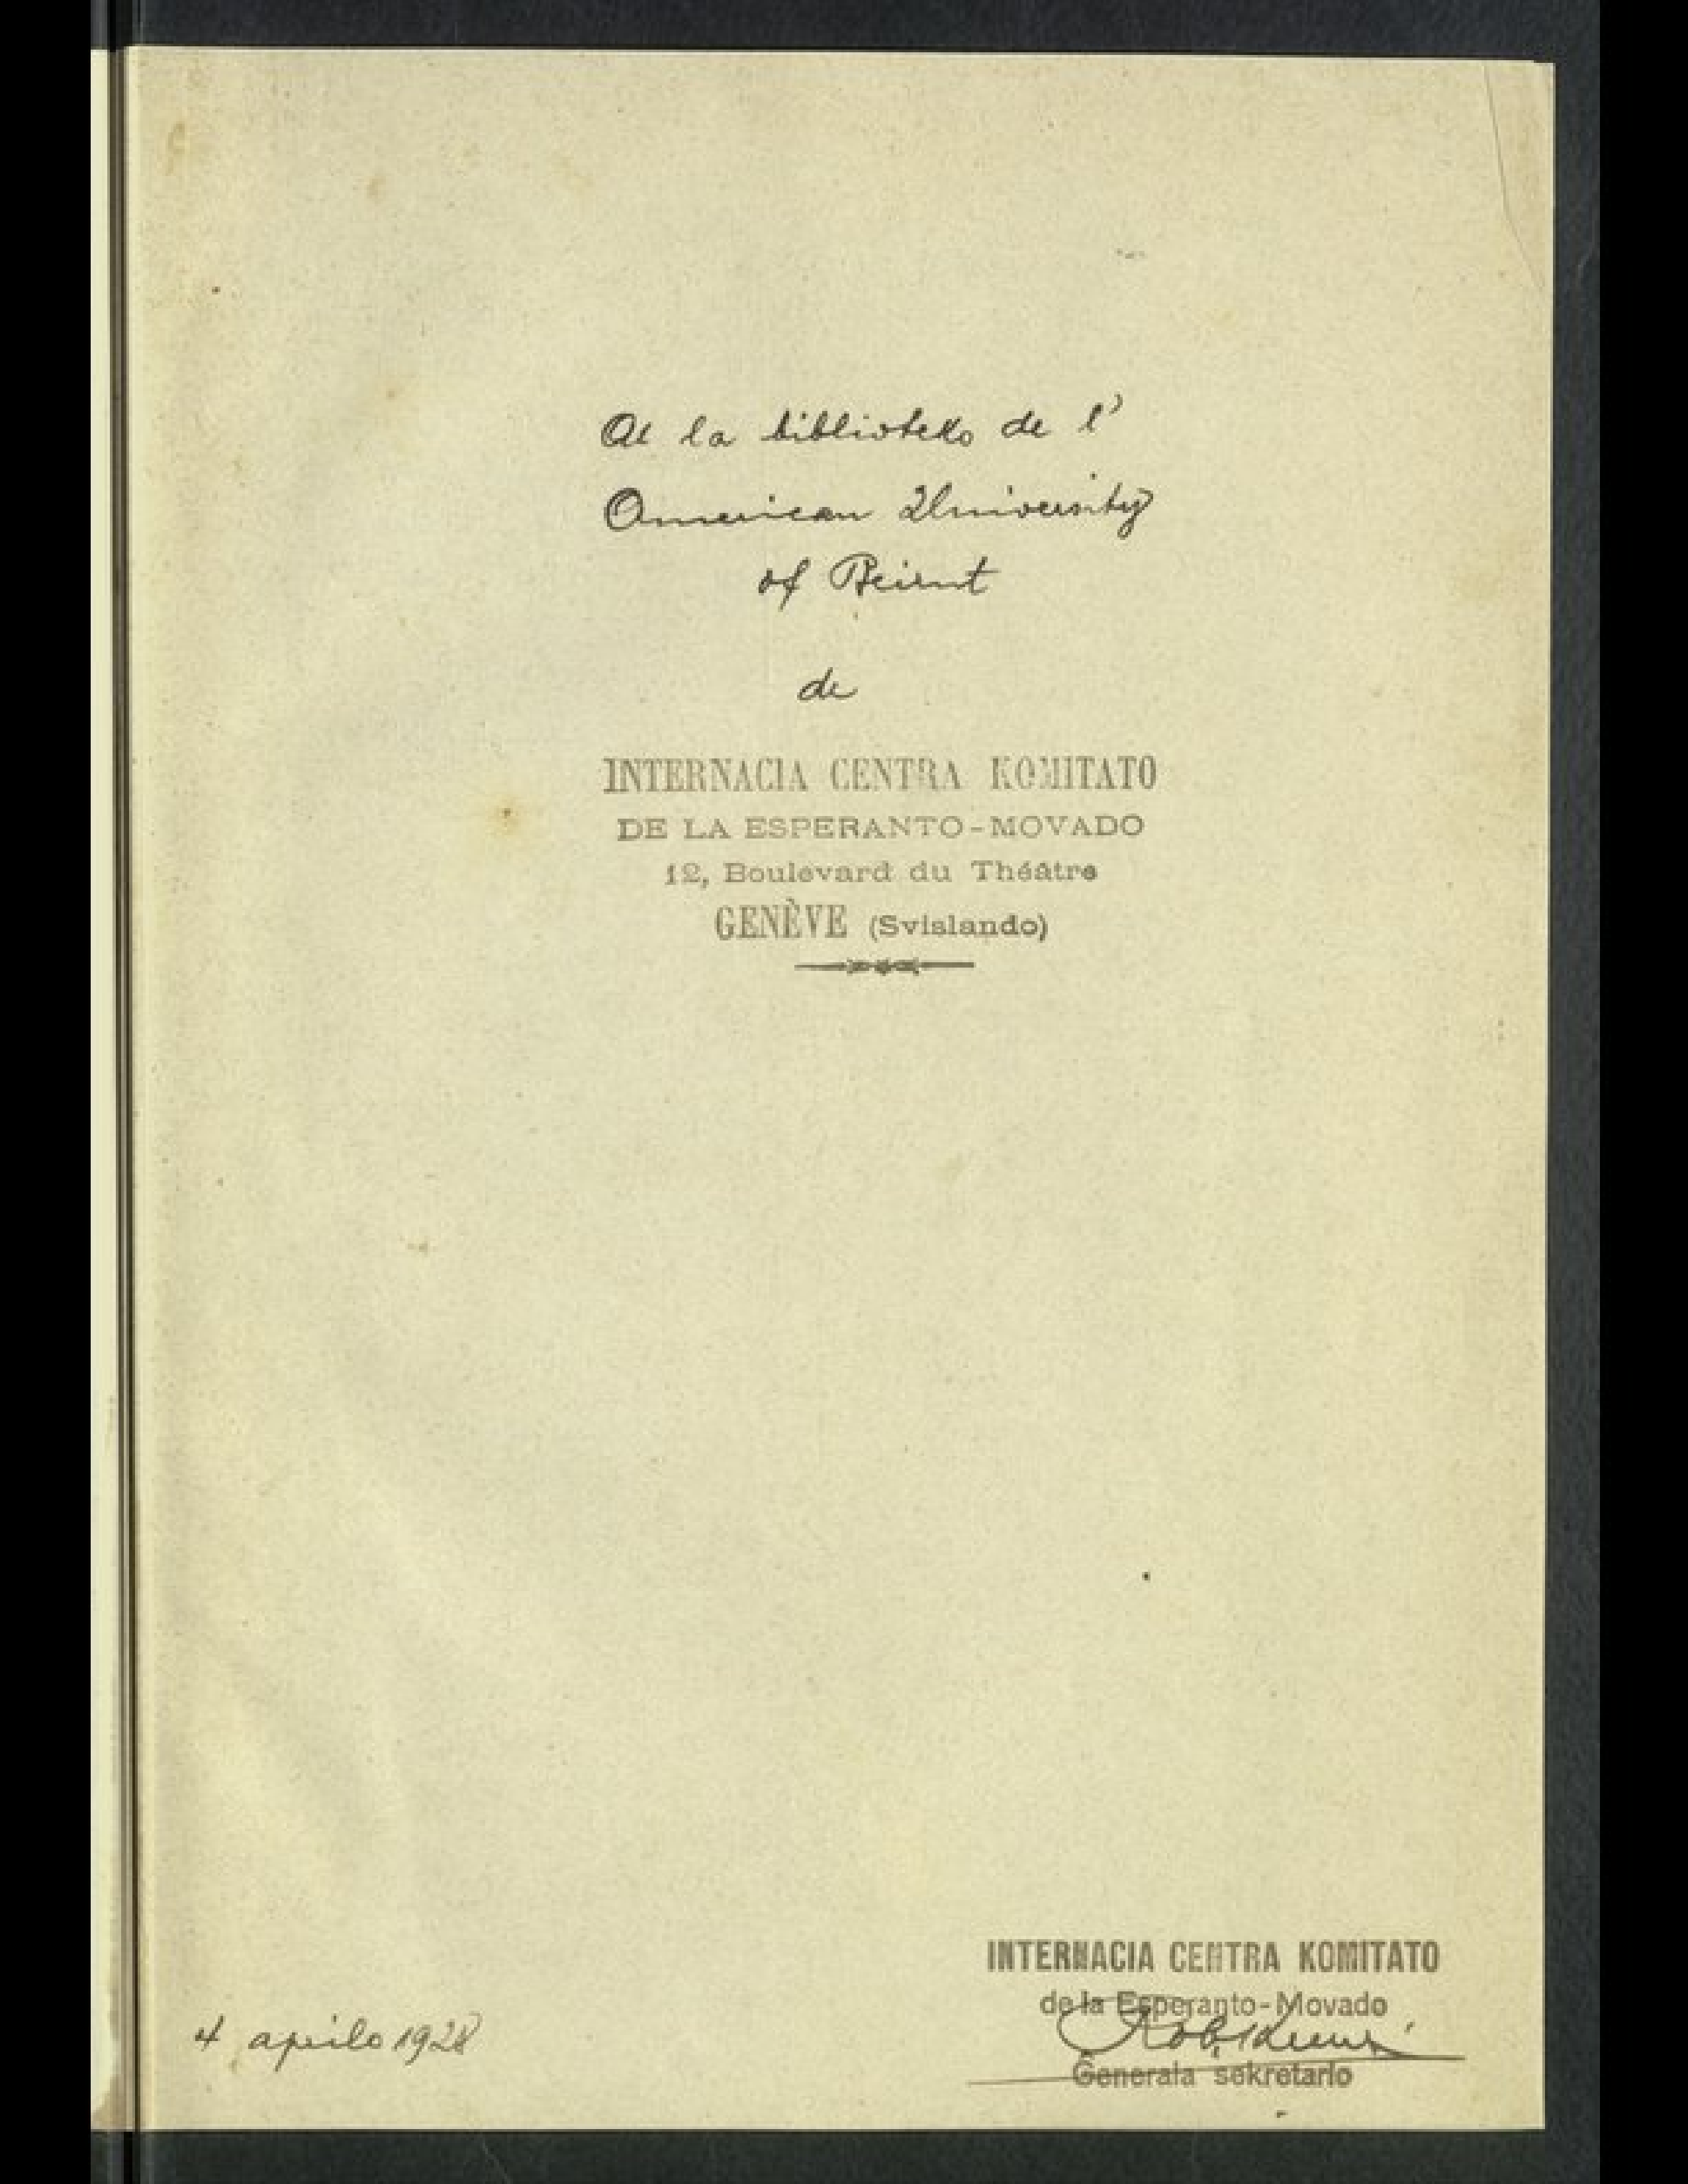 Al la biblioteko de l'
American University
of Beirut
de
INTERNACIA CENTRA KOMITATO
DE LA ESPERANTO-MOVADO
12, Boulevard du Théâtre
GENÈVE (Svislando)
INTERNACIA CENTRA KOMITATO
de la Esperanto-Movado
4 aprilo 1928
Ĝenerala sekretario